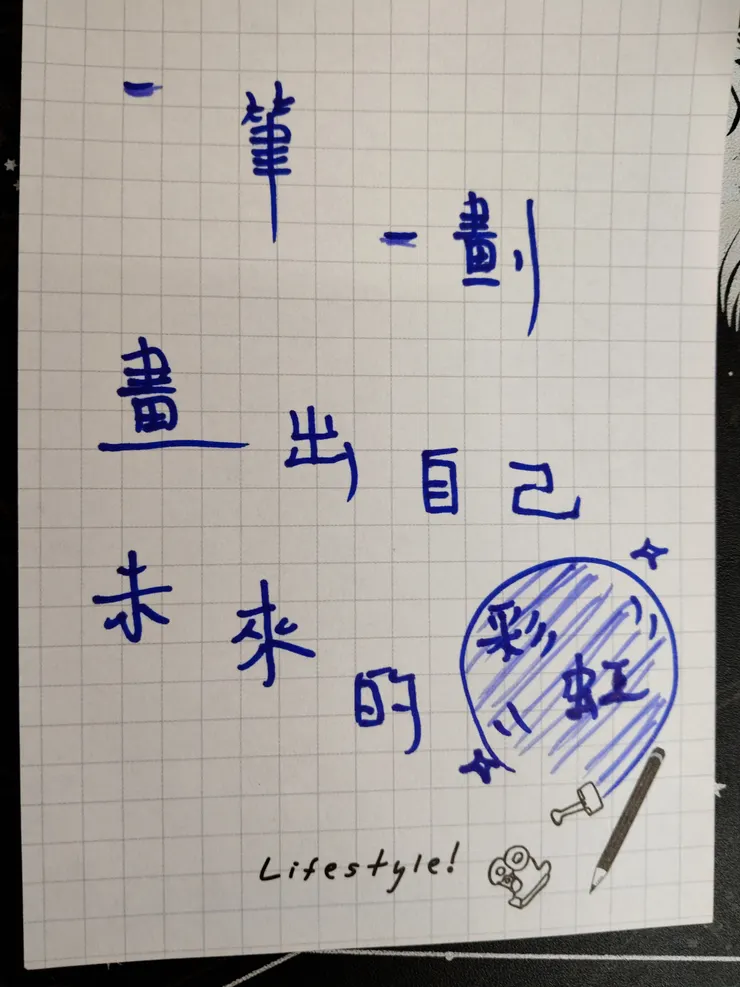 一筆
一劃
畫出自己
未來的彩虹
Lifestyle!